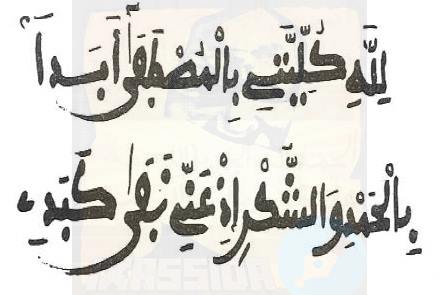 لِلَّهِ كُلِّيَّتِي بِالْمُصْطَفَى أَبَدًا
بِالْحَمْدِ وَالشُّكْرِ إِذْ عَنِّي نَفَى كَبَدِي